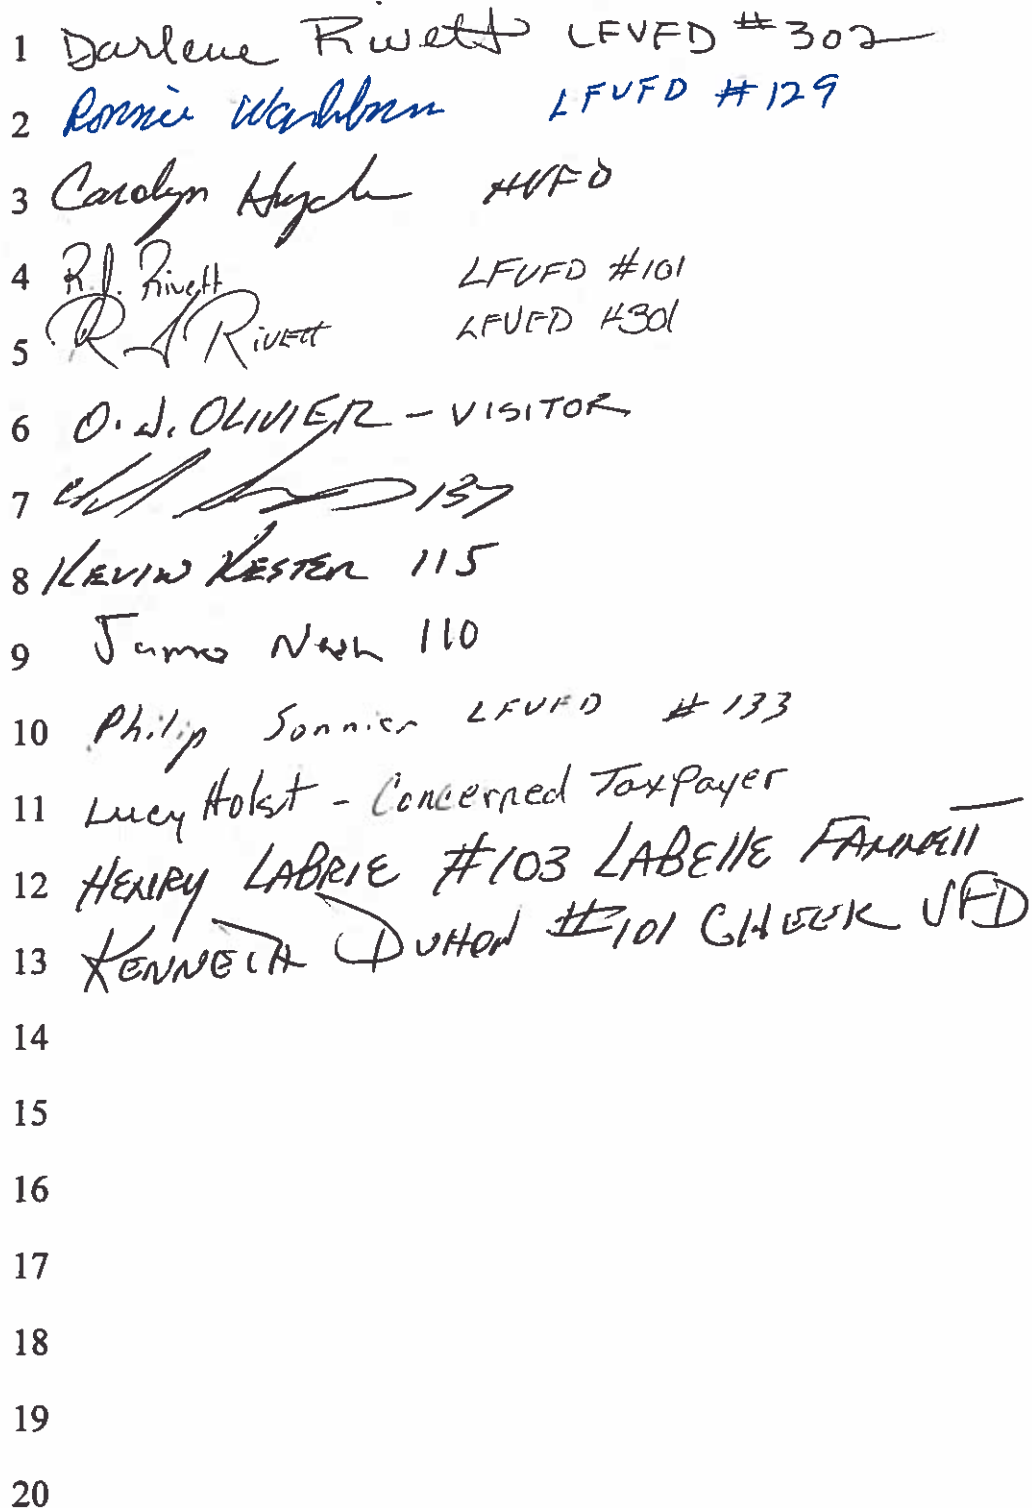 1 Darlene Rivett LFVFD #302
2 Ronnie Washburn LFVFD #129
3 Carolyn HVFD
4 R.J. Rivett LFVFD #101
5 R J Rivett LFVFD #301
6 O.J. OLIVIER - VISITOR
7 137
8 KEVIN KESTER 115
9 James Nash 110
10 Philip Sonnier LFVFD #133
11 Lucy Holst - Concerned Taxpayer
12 HENRY LABRIE #103 LABELLE FANNETT
13 KENNETH DUHON #101 CHEEK VFD
14
15
16
17
18
19
20